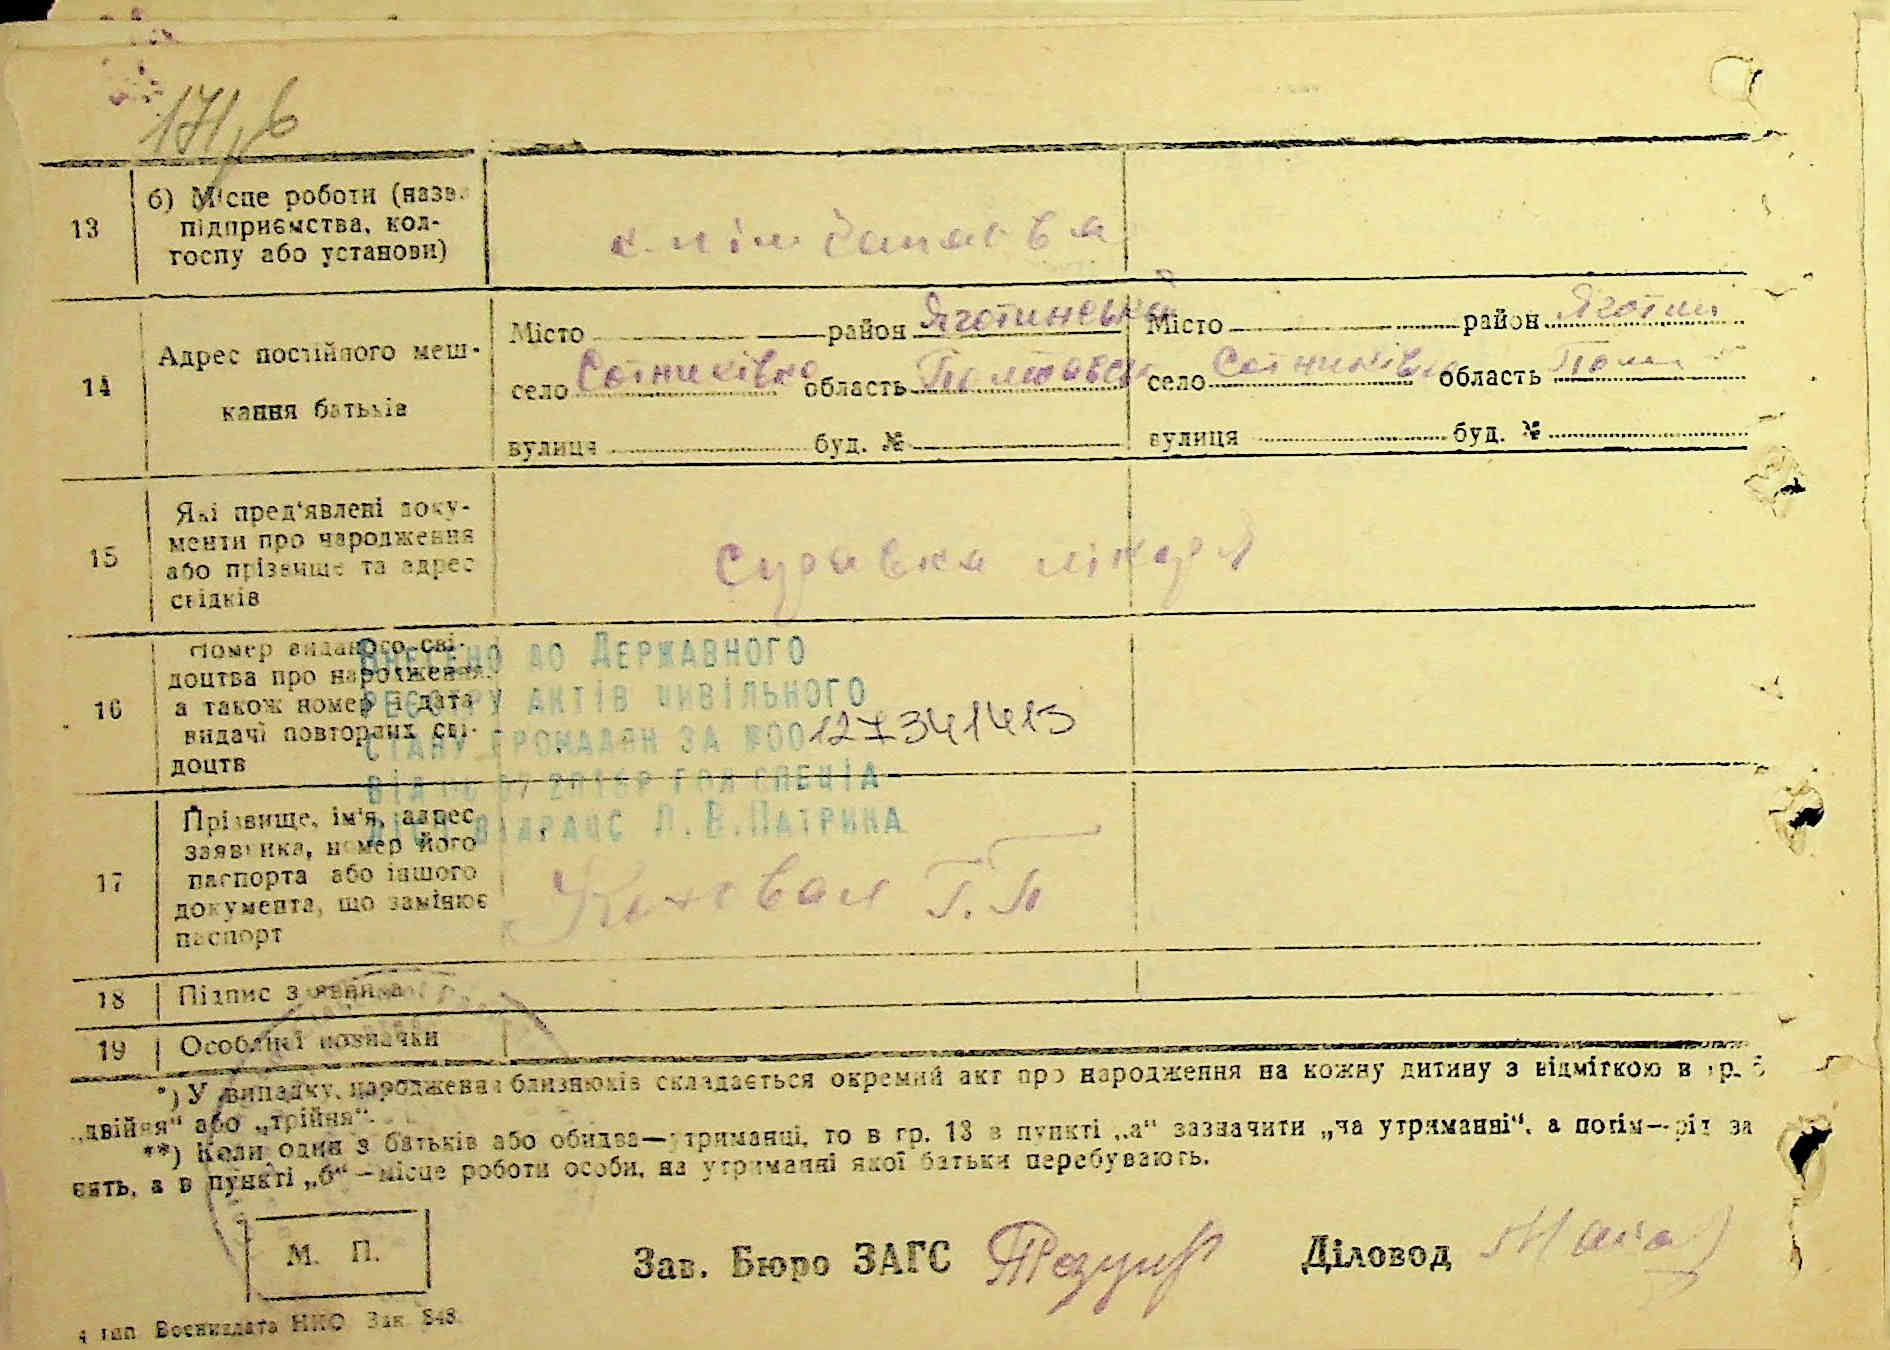 171
13
б) Місце роботи (назва
підприємства, кол-
госпу або установи)
14
Адрес постійного меш-
кання батьків
Місто район Яготинський
село Сотниківка область Полтавська
вулиця буд. №
Місто район Яготин
село Сотниківка область Полт
вулиця буд. №
15
Які пред'явлені доку-
менти про народження
або прізвище та адрес
свідків
Справка лікаря
16
Номер виданого сві-
доцтва про народження
а також номер і дата
видачі повторних сві-
доцтв
Внесено до Державного
реєстру актів цивільного
стану громадян за №00127341413
від 07 2016р спеціа-
ліст відрацс Л.В.Патрина
17
Прізвище, ім'я, адрес
заявника, номер його
паспорта або іншого
документа, що замінює
паспорт
Г. П
18
Підпис заявника
19
Особливі позначки
*) У випадку, народження близнюків складається окремий акт про народження на кожну дитину з відміткою в гр. 5
„двійня“ або „трійня“.
**) Коли один з батьків або обидва—утриманці, то в гр. 13 в пункті „а“ зазначити „на утриманні“, а потім—рід за
нять, а в пункті „б“—місце роботи особи, на утриманні якої батьки перебувають.
М. П.
Зав. Бюро ЗАГС
Діловод
4 тип Воениздата НКО Зак 848